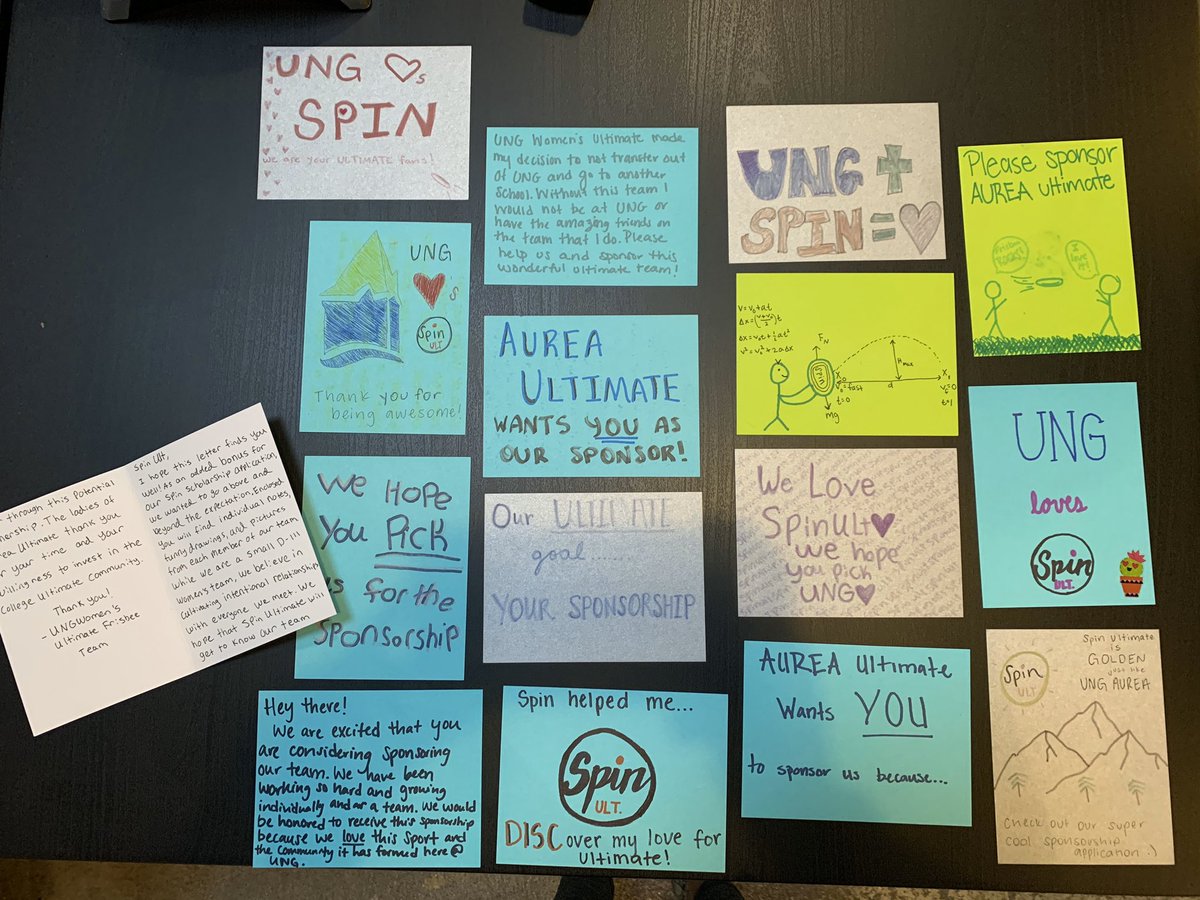 UNG ♡s
SPIN
we are your ULTIMATE fans!
UNG
♥'s
Spin
ULT.
Thank you for
being awesome!
through this potential
The ladies of
Ultimate thank you
your time and your
willingness to invest in the
College Ultimate Community.
Thank you!
- UNG Women's
Ultimate Frisbee
Team
Spin Ult,
I hope this letter finds you
well! As an added bonus for
our Spin scholarship application,
we wanted to go above and
beyond the expectation. Enclosed
you will find individual notes,
funny drawings, and pictures
from each member of our team.
While we are a small D-III
women's team, we believe in
cultivating intentional relationship
with everyone we meet. We
hope that Spin Ultimate will
get to know our team
We HOPE
You PICK
us for the
Sponsorship
Hey there!
We are excited that you
are considering sponsoring
our team. We have been
working so hard and growing
individually and as a team. We would
be honored to receive this sponsorship
because we love this sport and
the community it has formed here @
UNG.
UNG Women's Ultimate made
my decision to not transfer out
of UNG and go to another
school. Without this team I
would not be at UNG or
have the amazing friends on
the team that I do. Please
help us and sponsor this
wonderful ultimate team!
AUREA
ULTIMATE
WANTS YOU AS
OUR SPONSOR!
Our ULTIMATE
goal....
YOUR SPONSORSHIP
Spin helped me...
Spin
ULT.
DISCover my love for
ultimate!
UNG +
SPIN = ♡
V=V₀+at
Δx=(v+v₀/2)t
Δx=v₀t+½at²
v²=v₀²+2aΔx
F_N
mg
X₀
v₀=fast
t=0
H_max
d
X₁
We Love
SpinUlt♥
we hope
you pick
UNG♡
AUREA Ultimate
Wants YOU
to sponsor us because...
Please sponsor
AUREA ultimate
I
love
it!
UNG
loves
Spin
ULT.
Spin
ULT
Spin Ultimate
is
GOLDEN
just like
UNG AUREA
Check out our super
cool sponsorship
application :)